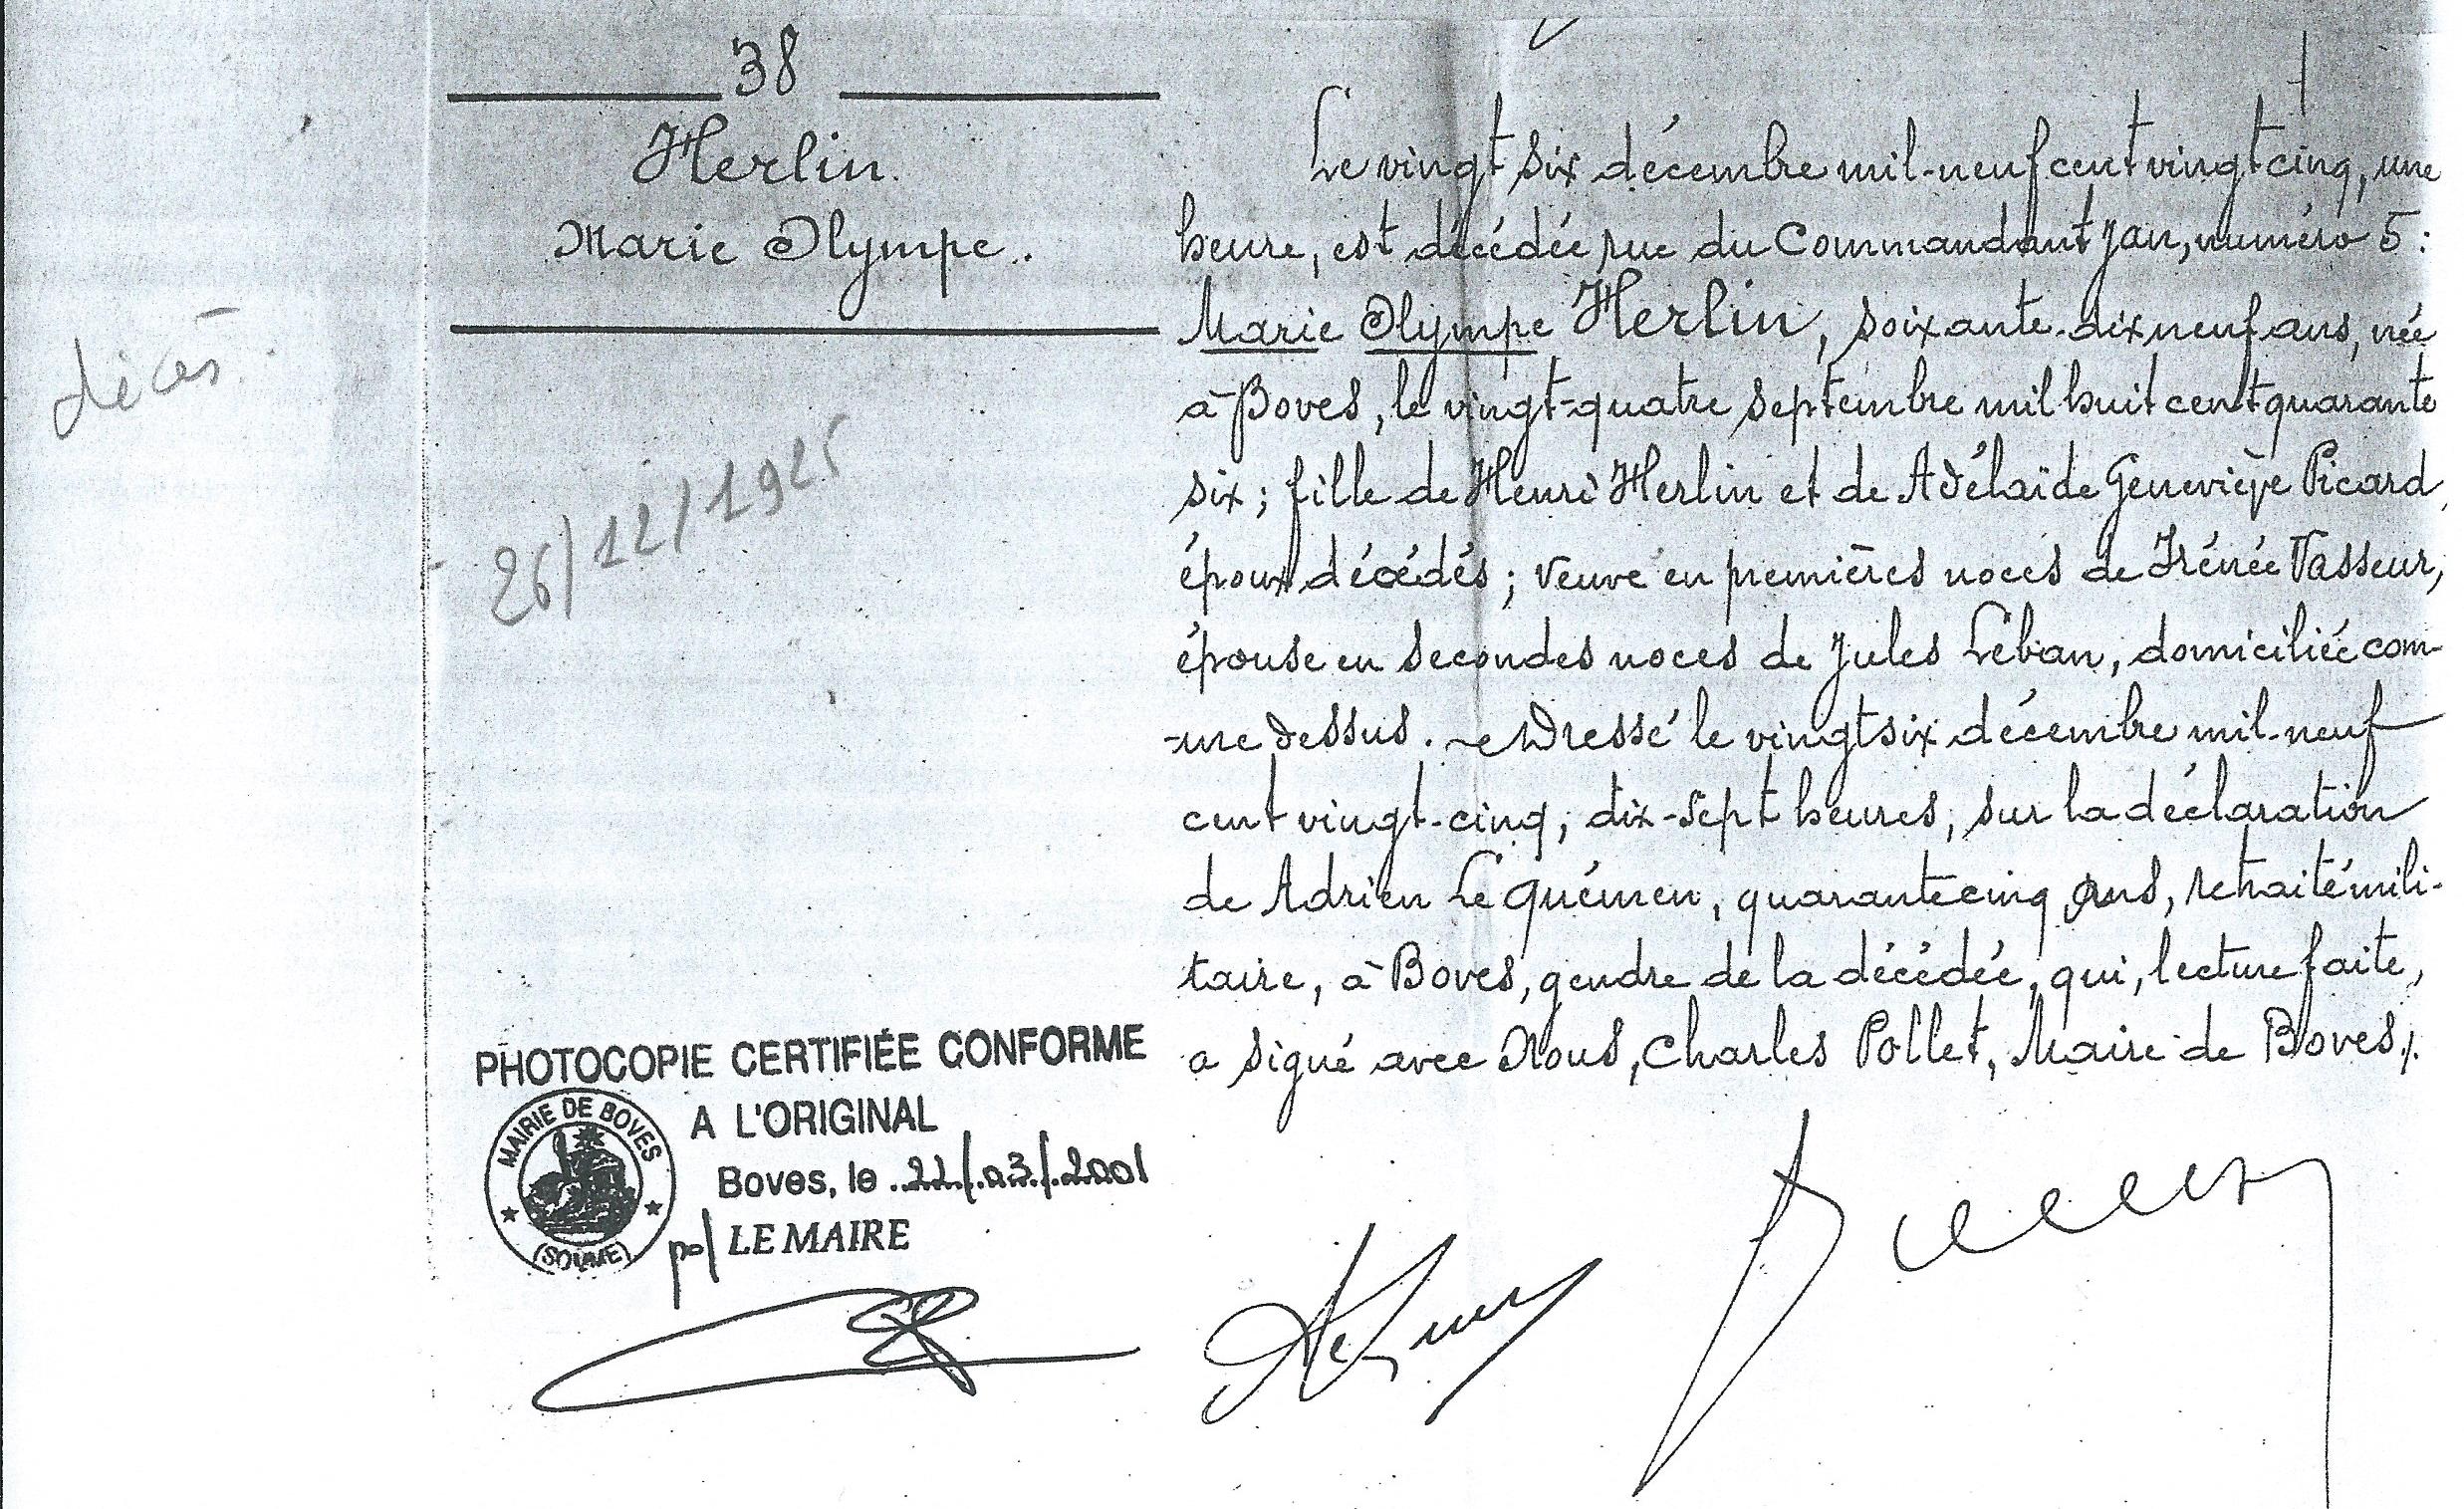 38
Herlin.
Marie Olympe.
décès.
26/12/1925
Le vingt six décembre mil-neuf cent vingt cinq, une
heure, est décédée rue du Commandant Jan, numéro 5 :
Marie Olympe Herlin, soixante-dix neuf ans, née
à Boves, le vingt-quatre septembre mil huit cent quarante
six ; fille de Henri Herlin et de Adélaïde Geneviève Picard,
époux décédés ; veuve en premières noces de Irénée Vasseur,
épouse en secondes noces de Jules Leban, domiciliée com-
-me dessus. Dressé le vingt six décembre mil-neuf
cent vingt-cinq, dix-sept heures, sur la déclaration
de Adrien Le Guémen, quarante cinq ans, retraité mili-
taire, à Boves, gendre de la décédée, qui, lecture faite,
a signé avec Nous, Charles Pollet, Maire de Boves.
PHOTOCOPIE CERTIFIÉE CONFORME
A L'ORIGINAL
Boves, le 22/03/2001
po/ LE MAIRE
MAIRIE DE BOVES
(SOMME)